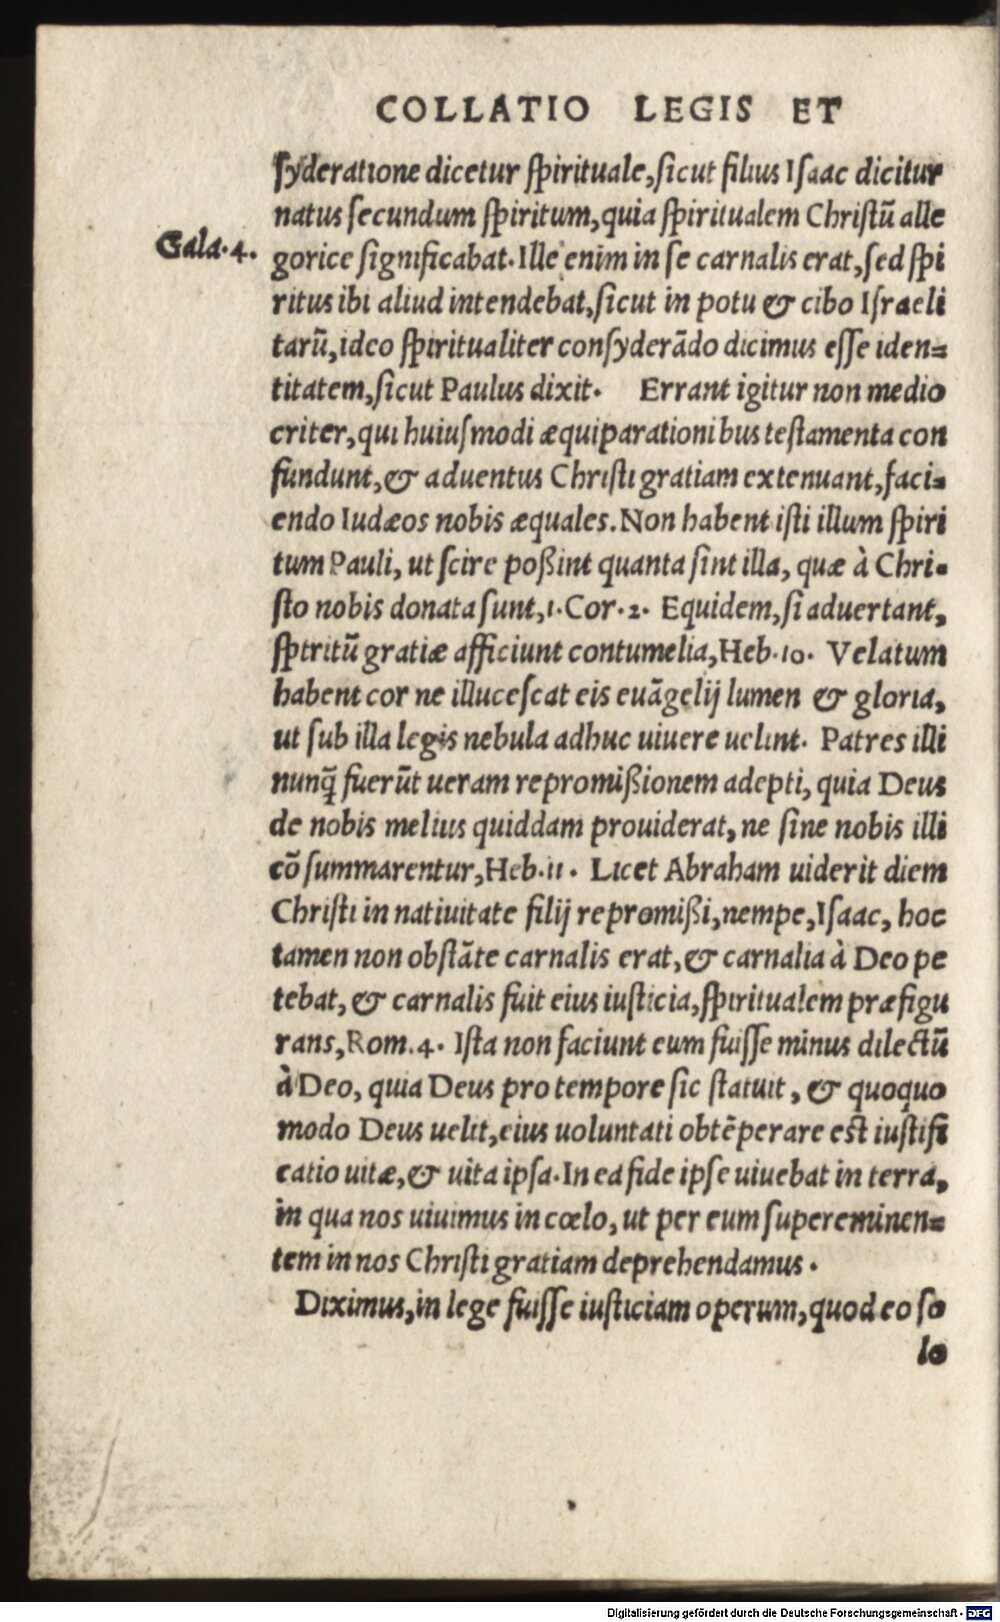 COLLATIO LEGIS ET
syderatione dicetur spirituale, sicut filius Isaac dicitur
natus secundum spiritum, quia spiritualem Christũ alle
Gala. 4.
gorice significabat. Ille enim in se carnalis erat, sed spi
ritus ibi aliud intendebat, sicut in potu & cibo Israeli
tarũ, ideo spiritualiter consyderãdo dicimus esse iden=
titatem, sicut Paulus dixit. Errant igitur non medio
criter, qui huiusmodi æquiparationibus testamenta con
fundunt, & aduentus Christi gratiam extenuant, faci=
endo Iudæos nobis æquales. Non habent isti illum spiri
tum Pauli, ut scire poßint quanta sint illa, quæ à Chri=
sto nobis donata sunt, 1. Cor. 2. Equidem, si aduertant,
sptritũ gratiæ afficiunt contumelia, Heb. 10. Velatum
habent cor ne illucescat eis euãgelij lumen & gloria,
ut sub illa legis nebula adhuc uiuere uelint. Patres illi
nunq̃ fuerũt ueram repromißionem adepti, quia Deus
de nobis melius quiddam prouiderat, ne sine nobis illi
cõsummarentur, Heb. 11. Licet Abraham uiderit diem
Christi in natiuitate filij repromißi, nempe, Isaac, hoc
tamen non obstãte carnalis erat, & carnalia à Deo pe
tebat, & carnalis fuit eius iusticia, spiritualem præfigu
rans, Rom. 4. Ista non faciunt eum fuisse minus dilectũ
à Deo, quia Deus pro tempore sic statuit, & quoquo
modo Deus uelit, eius uoluntati obtẽperare est iustifi
catio uitæ, & uita ipsa. In ea fide ipse uiuebat in terra,
in qua nos uiuimus in cœlo, ut per eum supereminen=
tem in nos Christi gratiam deprehendamus.
Diximus, in lege fuisse iusticiam operum, quod eo so
lo
Digitalisierung gefördert durch die Deutsche Forschungsgemeinschaft - DFG